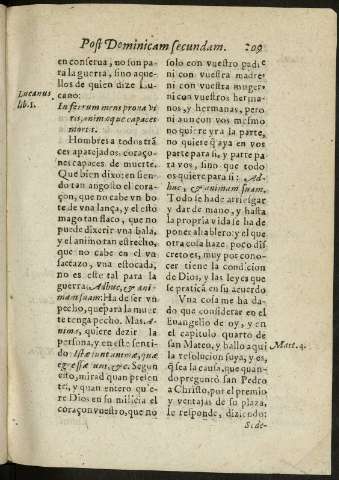 Post Dominicam secundam. 209
en conserua, no son pa-
ra la guerra, sino aque-
llos de quien dize Lu-
cano:
Lucanus
lib.1.
In ferrum mens prona vi
ris, animæque capaces
mortis.
Hombres a todos trã
ces aparejados, coraço-
nes capaces de muerte.
Que bien dixo: en sien-
do tan angosto el cora-
çon, que no cabe vn bo
te de vna lança, y el esto
mago tan flaco, que no
puede dixerir vna bala,
y el animo tan estrecho,
que no cabe en el vn
vna estocada,
no es este tal para la
guerra. Adhuc, & ani-
mam suam: Ha de ser vn
pecho, que para la muer
te tenga pecho. Mas. A-
nima, quiere dezir la
persona, y en este senti-
do. Istæ sunt animæ, quæ
egressæ sunt, &c. Segun
esto, mirad quan presen
te, y quan entero quie-
re Dios en su milicia el
coraçon vuestro, que no
solo con vuestro padre
ni con vuestra madre,
ni con vuestra muger,
ni con vuestros herma-
nos, y hermanas, pero
ni aun con vos mesmo
no quiere yra la parte,
no quiere q̃ aya en vos
parte para si, y parte pa
ra vos, sino que todo
os quiere para si: Ad-
huc, & animam suam.
Todo se ha de arriesgar
y dar de mano, y hasta
la propria vida se ha de
poner al tablero: y el que
otra cosa haze, poco dis
creto es, muy por cono-
cer tiene la condicion
de Dios, y las leyes que
se praticã en su acuerdo
Vna cosa me ha da-
do que considerar en el
Euangelio de oy, y en
el capitulo quarto de
san Mateo, y hallo aqui
Matt. 4.
la resolucion suya, y es,
q̃ sea la causa, que quan-
do preguntó san Pedro
a Christo, por el premio
y ventajas de su plaza,
le responde, diziendo:
Sede-